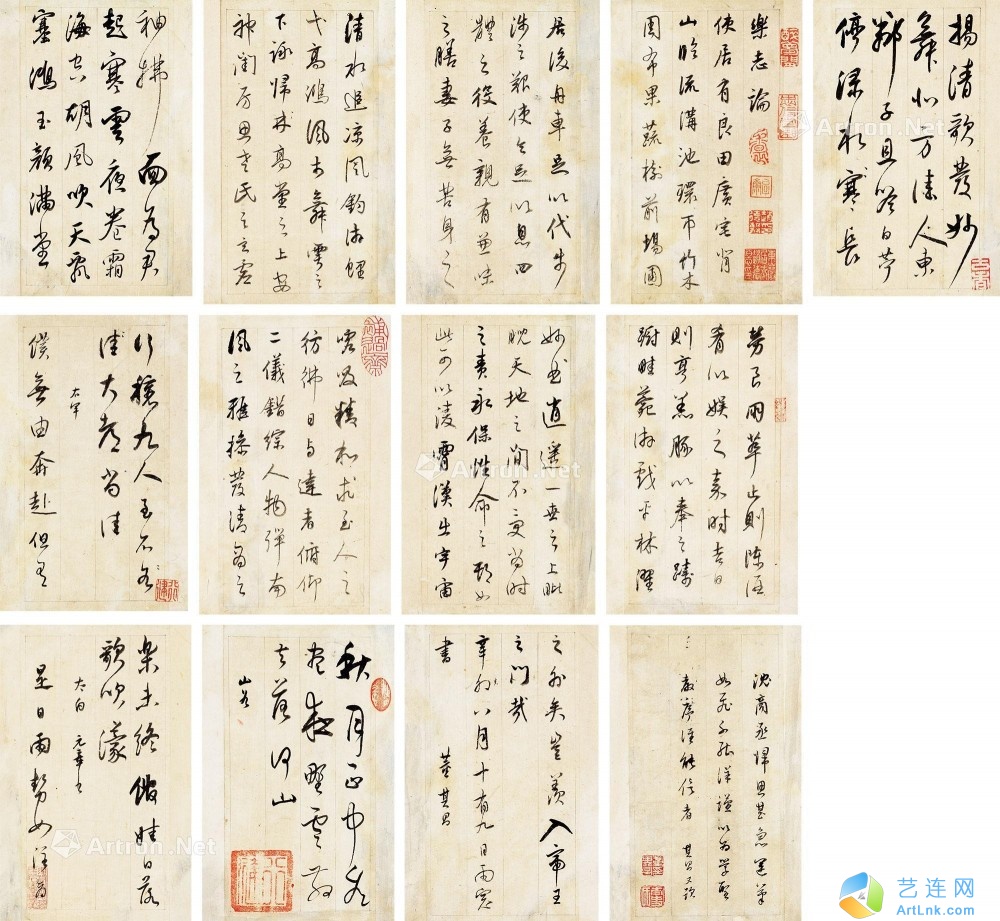 揚清歌發妙
舞北方佳人東
鄰子且吟白苧
停淥水寒長
樂志論
使居有良田廣宅背
山臨流溝池環帀竹木
周布果蔬樹前場圃
居後舟車足以代步
涉之艱使令足以息四
體之役養親有兼味
之膳妻子無苦身之
清水追涼風釣游鯉
弋高鴻風於舞雩之
下詠歸林高堂之上安
神閨房思老氏之玄虛
袖拂面為君
起寒雲夜卷霜
海空胡風吹天飄
塞鴻玉顏滿堂
勞良朋萃止則陳酒
肴以娛之嘉時吉日
則亨羔豚以奉之躊
躇畦苑游戲平林濯
妙曲逍遙一世之上睥
睨天地之間不受當時
之責永保性命之期如
此可以凌霄漢出宇宙
吸精和求至人之
彷彿日與達者俯仰
二儀錯綜人物彈南
風之雅操發清商之
行穰九人至不
佳大都當佳
僕無由奔赴但有
沈商丞歸思甚急運筆
如飛不能詳謹以為學聖
教序 能信者 其昌又題
之外矣豈羨入帝王
之門哉
辛卯八月十有九日雨窗
書 董其昌
秋月正中
野雲
山谷
樂未終館娃日落
歌吹濛
太白 元章書
是日雨勢如注
Artron.Net
艺连网
ArtLnk.com